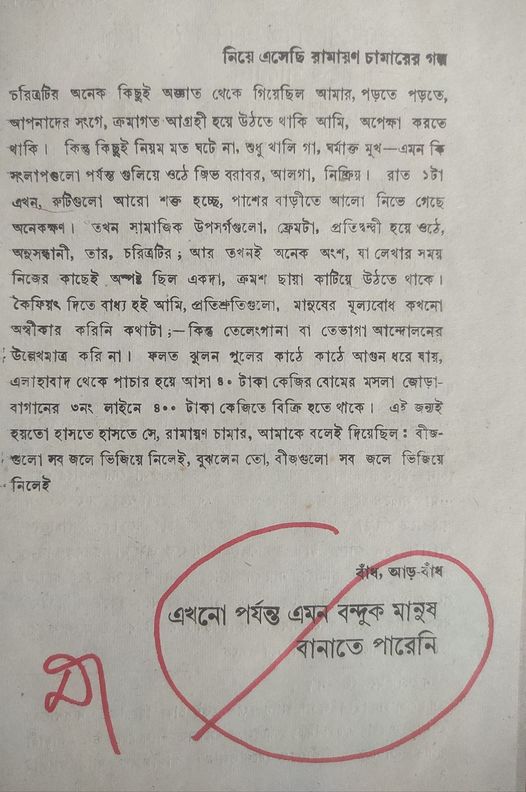 নিয়ে এসেছি রামায়ণ চামারের গল্প
চরিত্রটির অনেক কিছুই অজ্ঞাত থেকে গিয়েছিল আমার, পড়তে পড়তে,
আপনাদের সংগে, ক্রমাগত আগ্রহী হয়ে উঠতে থাকি আমি, অপেক্ষা করতে
থাকি। কিন্তু কিছুই নিয়ম মত ঘটে না, শুধু খালি গা, ঘর্মাক্ত মুখ—এমন কি
সংলাপগুলো পর্যন্ত গুলিয়ে ওঠে জিভ বরাবর, আলগা, নিষ্ক্রিয়। রাত ১টা
এখন, রুটিগুলো আরো শক্ত হচ্ছে, পাশের বাড়ীতে আলো নিভে গেছে
অনেকক্ষণ। তখন সামাজিক উপসর্গগুলো, ফ্রেমটা, প্রতিদ্বন্দ্বী হয়ে ওঠে,
অনুসন্ধানী, তার, চরিত্রটির; আর তখনই অনেক অংশ, যা লেখার সময়
নিজের কাছেই অস্পষ্ট ছিল একদা, ক্রমশ ছায়া কাটিয়ে উঠতে থাকে।
কৈফিয়ৎ দিতে বাধ্য হই আমি, প্রতিশ্রুতিগুলো, মানুষের মূল্যবোধ কখনো
অস্বীকার করিনি কথাটা;—কিন্তু তেলেংগানা বা তেভাগা আন্দোলনের
উল্লেখমাত্র করি না। ফলত ঝুলন পুলের কাঠে কাঠে আগুন ধরে যায়,
এলাহাবাদ থেকে পাচার হয়ে আসা ৪০ টাকা কেজির বোমের মসলা জোড়া-
বাগানের ৩নং লাইনে ৪০০ টাকা কেজিতে বিক্রি হতে থাকে। এই জন্যই
হয়তো হাসতে হাসতে সে, রামায়ণ চামার, আমাকে বলেই দিয়েছিল: বীজ-
গুলো সব জলে ভিজিয়ে নিলেই, বুঝলেন তো, বীজগুলো সব জলে ভিজিয়ে
নিলেই
বাঁধ, আড়-বাঁধ
এখনো পর্যন্ত এমন বন্দুক মানুষ
বানাতে পারেনি